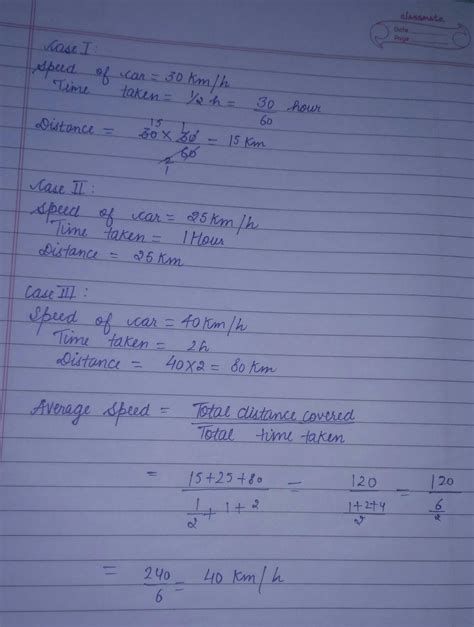 classmate
Date
Page
Case I:
Speed of car = 30 Km/h
Time taken = 1/2 h = 30/60 hour
Distance = 30 15 × 30 1 / 60 2 1 = 15 Km
Case II:
Speed of car = 25 Km/h
Time taken = 1 Hour
Distance = 25 Km
Case III:
Speed of car = 40 Km/h
Time taken = 2h
Distance = 40×2 = 80 Km
Average Speed = Total distance covered / Total time taken
= 15+25+80 / 1/2 + 1+2 = 120 / 1+2+4/2 = 120 / 6/2
= 240/6 = 40 Km/h